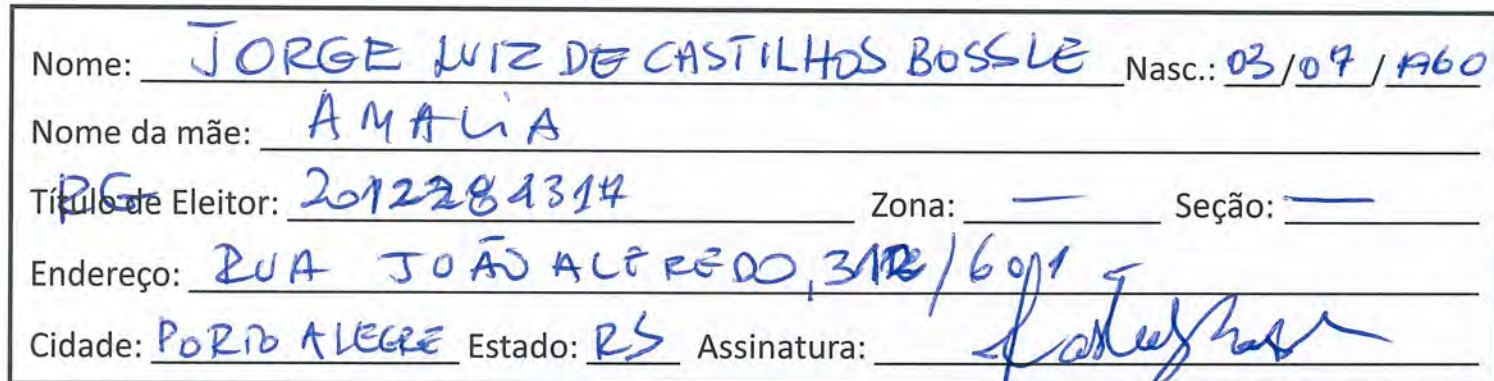 Nome: JORGE LUIZ DE CASTILHOS BOSSLE Nasc.: 03/07/1960
Nome da mãe: AMALIA
RG
Título de Eleitor: 2012281317 Zona: — Seção: —
Endereço: RUA JOÃO ALFREDO, 312/601
Cidade: PORTO ALEGRE Estado: RS Assinatura: